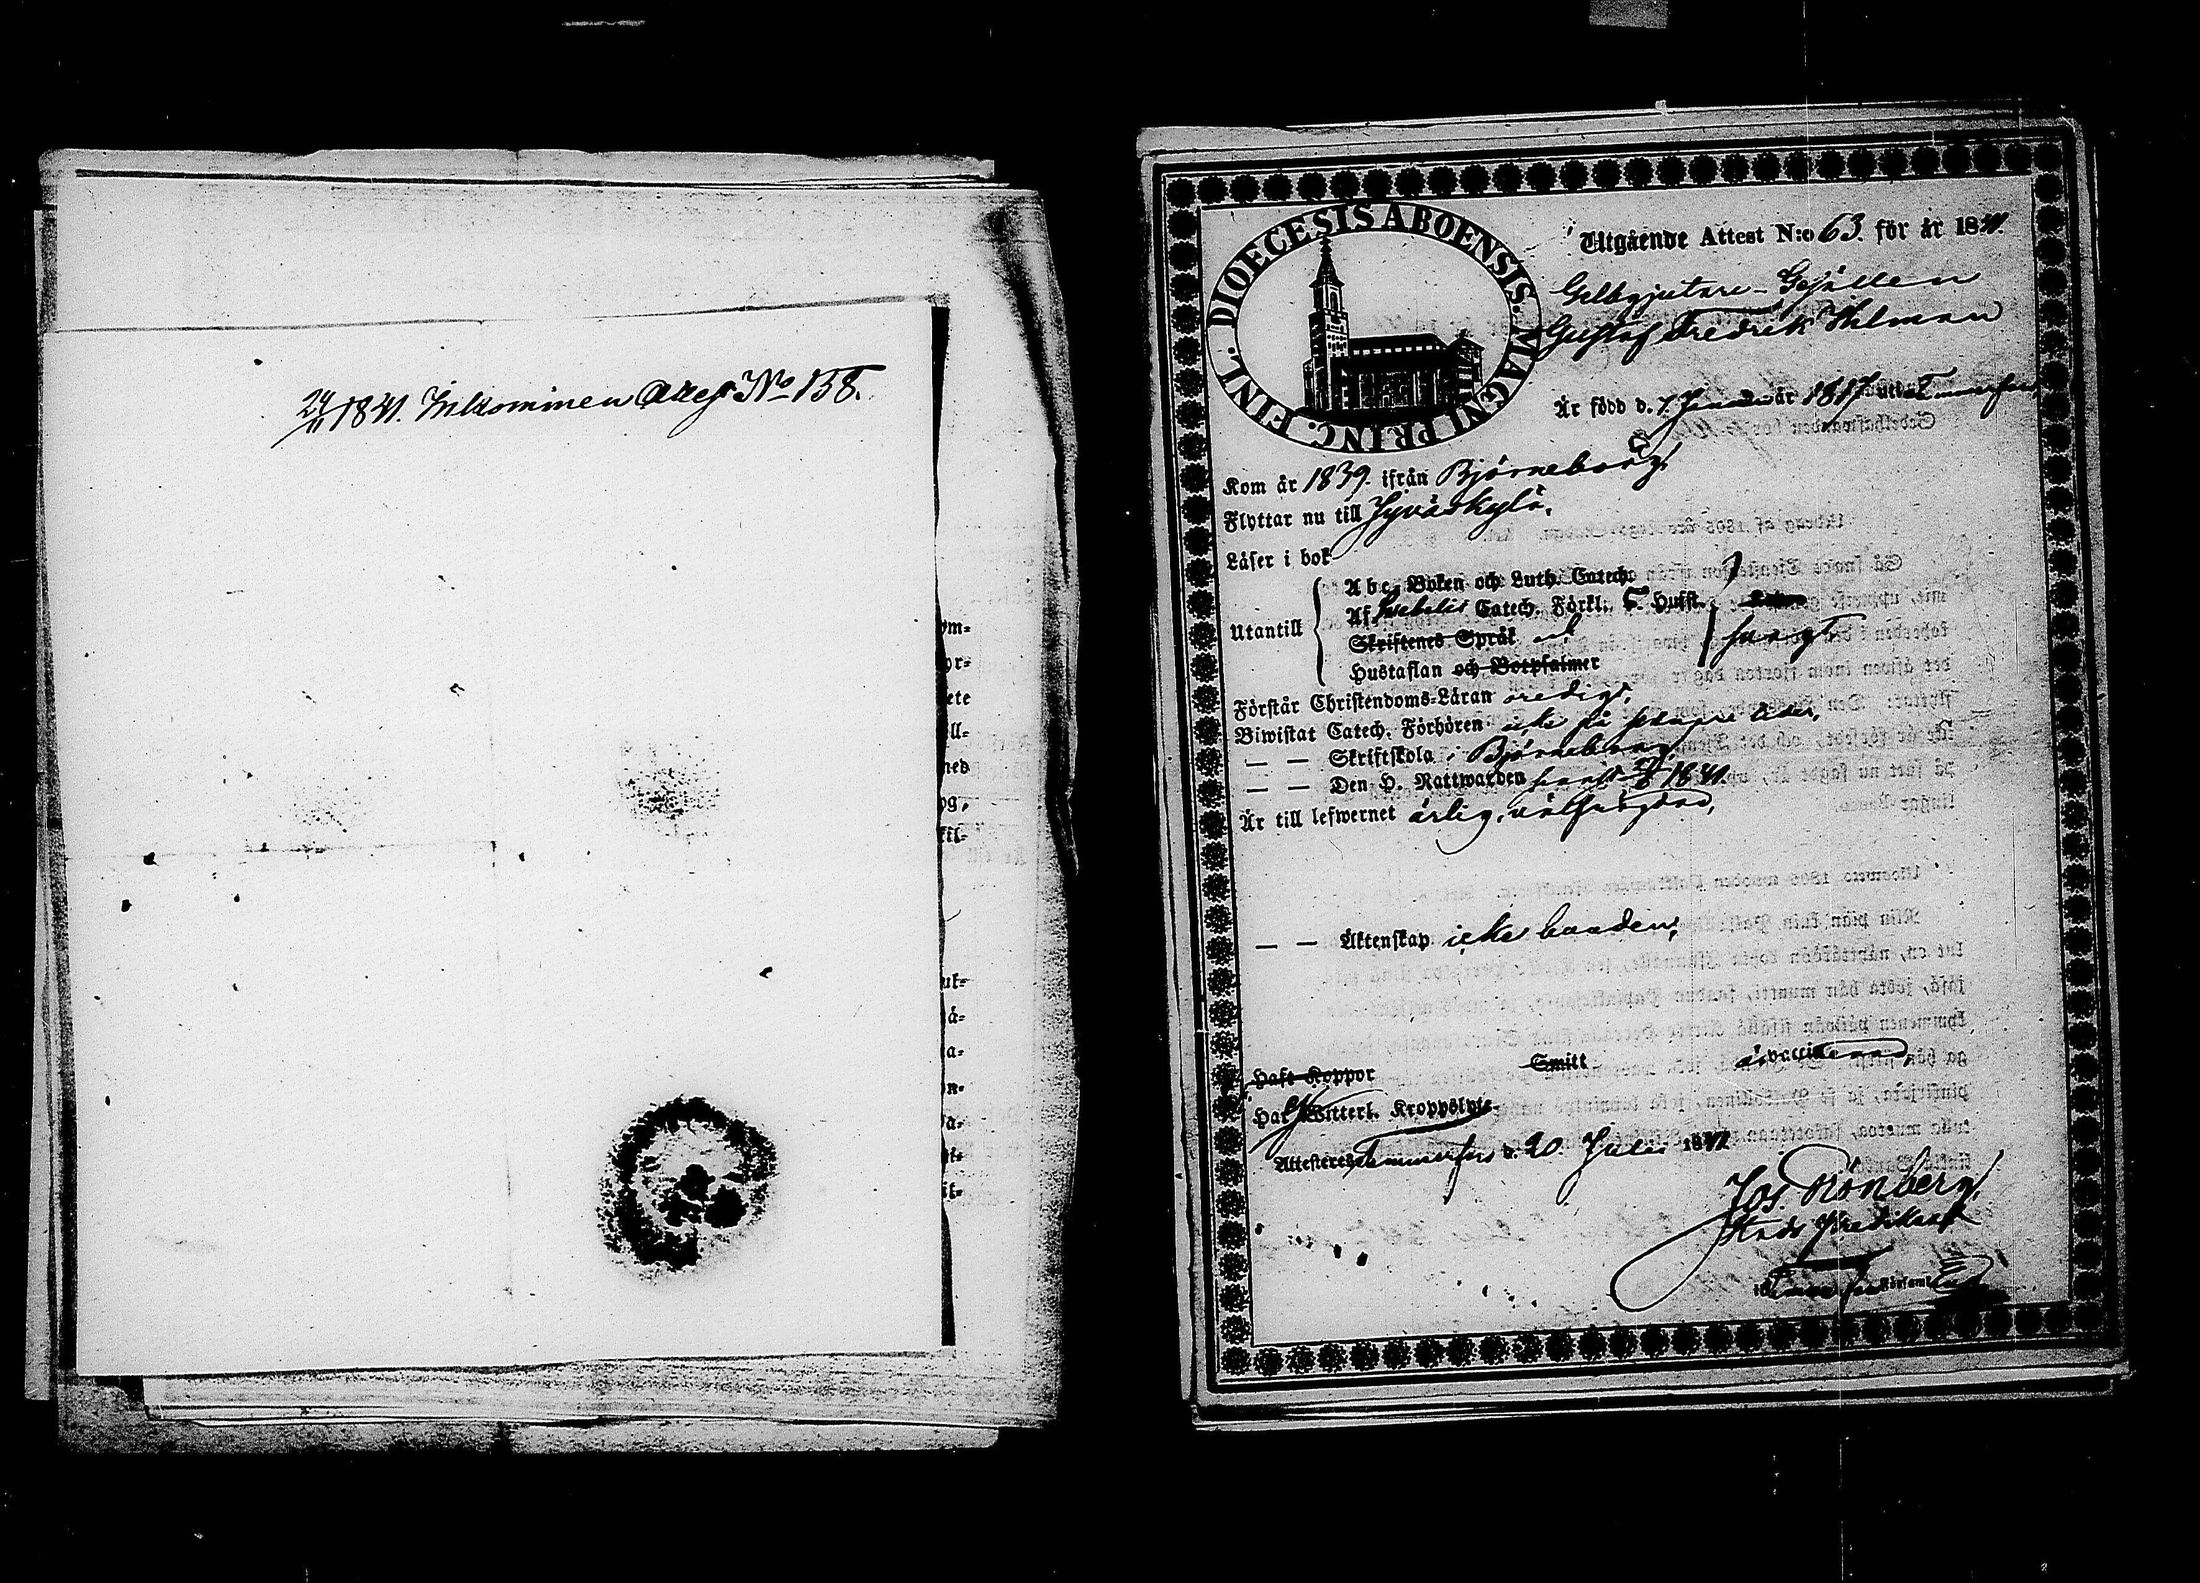 24/11 1841. Inkommen Attest No 158.
DIOECESIS ABOENSIS. MAGNI PRINC. FINL.
Utgående Attest N:o 63. för år 1841.
Gelbgjutare-Gesällen
Gustaf Fredrik Hilman
Är född d. 7. Januarii år 1817 uti Tammerfors
Kom år 1839. ifrån Björneborg,
Flyttar nu till Jyväskylä.
Läser i bok
Utantill
Abc-Boken och Luth. Catech.
Af Svebelii Catech. Förkl. 5 Hufst.
Skriftenes Språk och
Hustaflan och Botpsalmer
svagt
Förstår Christendoms-Läran oredigt.
Biwistat Catech. Förhören icke på senare tider.
— — Skriftskola i Björneborg,
— — Den H. Nattwarden senast 1841.
Är till lefwernet ärlig, välfrägdad,
— — Äktenskap icke bunden,
Haft Koppor
Smitt
är vaccinerad
Har Witterl. Kroppslyte
Attesteras Tammerfors d. 20. Julii 1841
Jos. Rönberg,
Stads Predikant